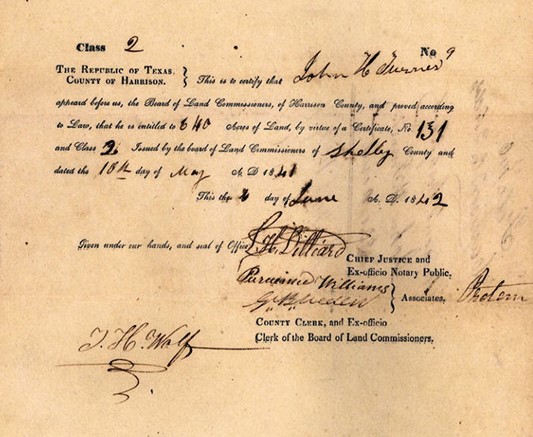 Class 2 No 9
The Republic of Texas,
County of Harrison. } This is to certify that John H Turner
apeared before us, the Board of Land Commissioners, of Harrison County, and proved according
to Law, that he is entitled to 640 Acres of Land, by virtue of a Certificate, No. 131
and Class 2. Issued by the board of Land Commissioners of Shelby County and
dated the 18th day of May A. D 1841
This the 2 day of June A. D. 1842
Given under our hands, and seal of Office,
Chief Justice and
Ex-officio Notary Public,
Williams
} Associates, Protem
County Clerk, and Ex-officio
J. H. Wolf Clerk of the Board of Land Commissioners,